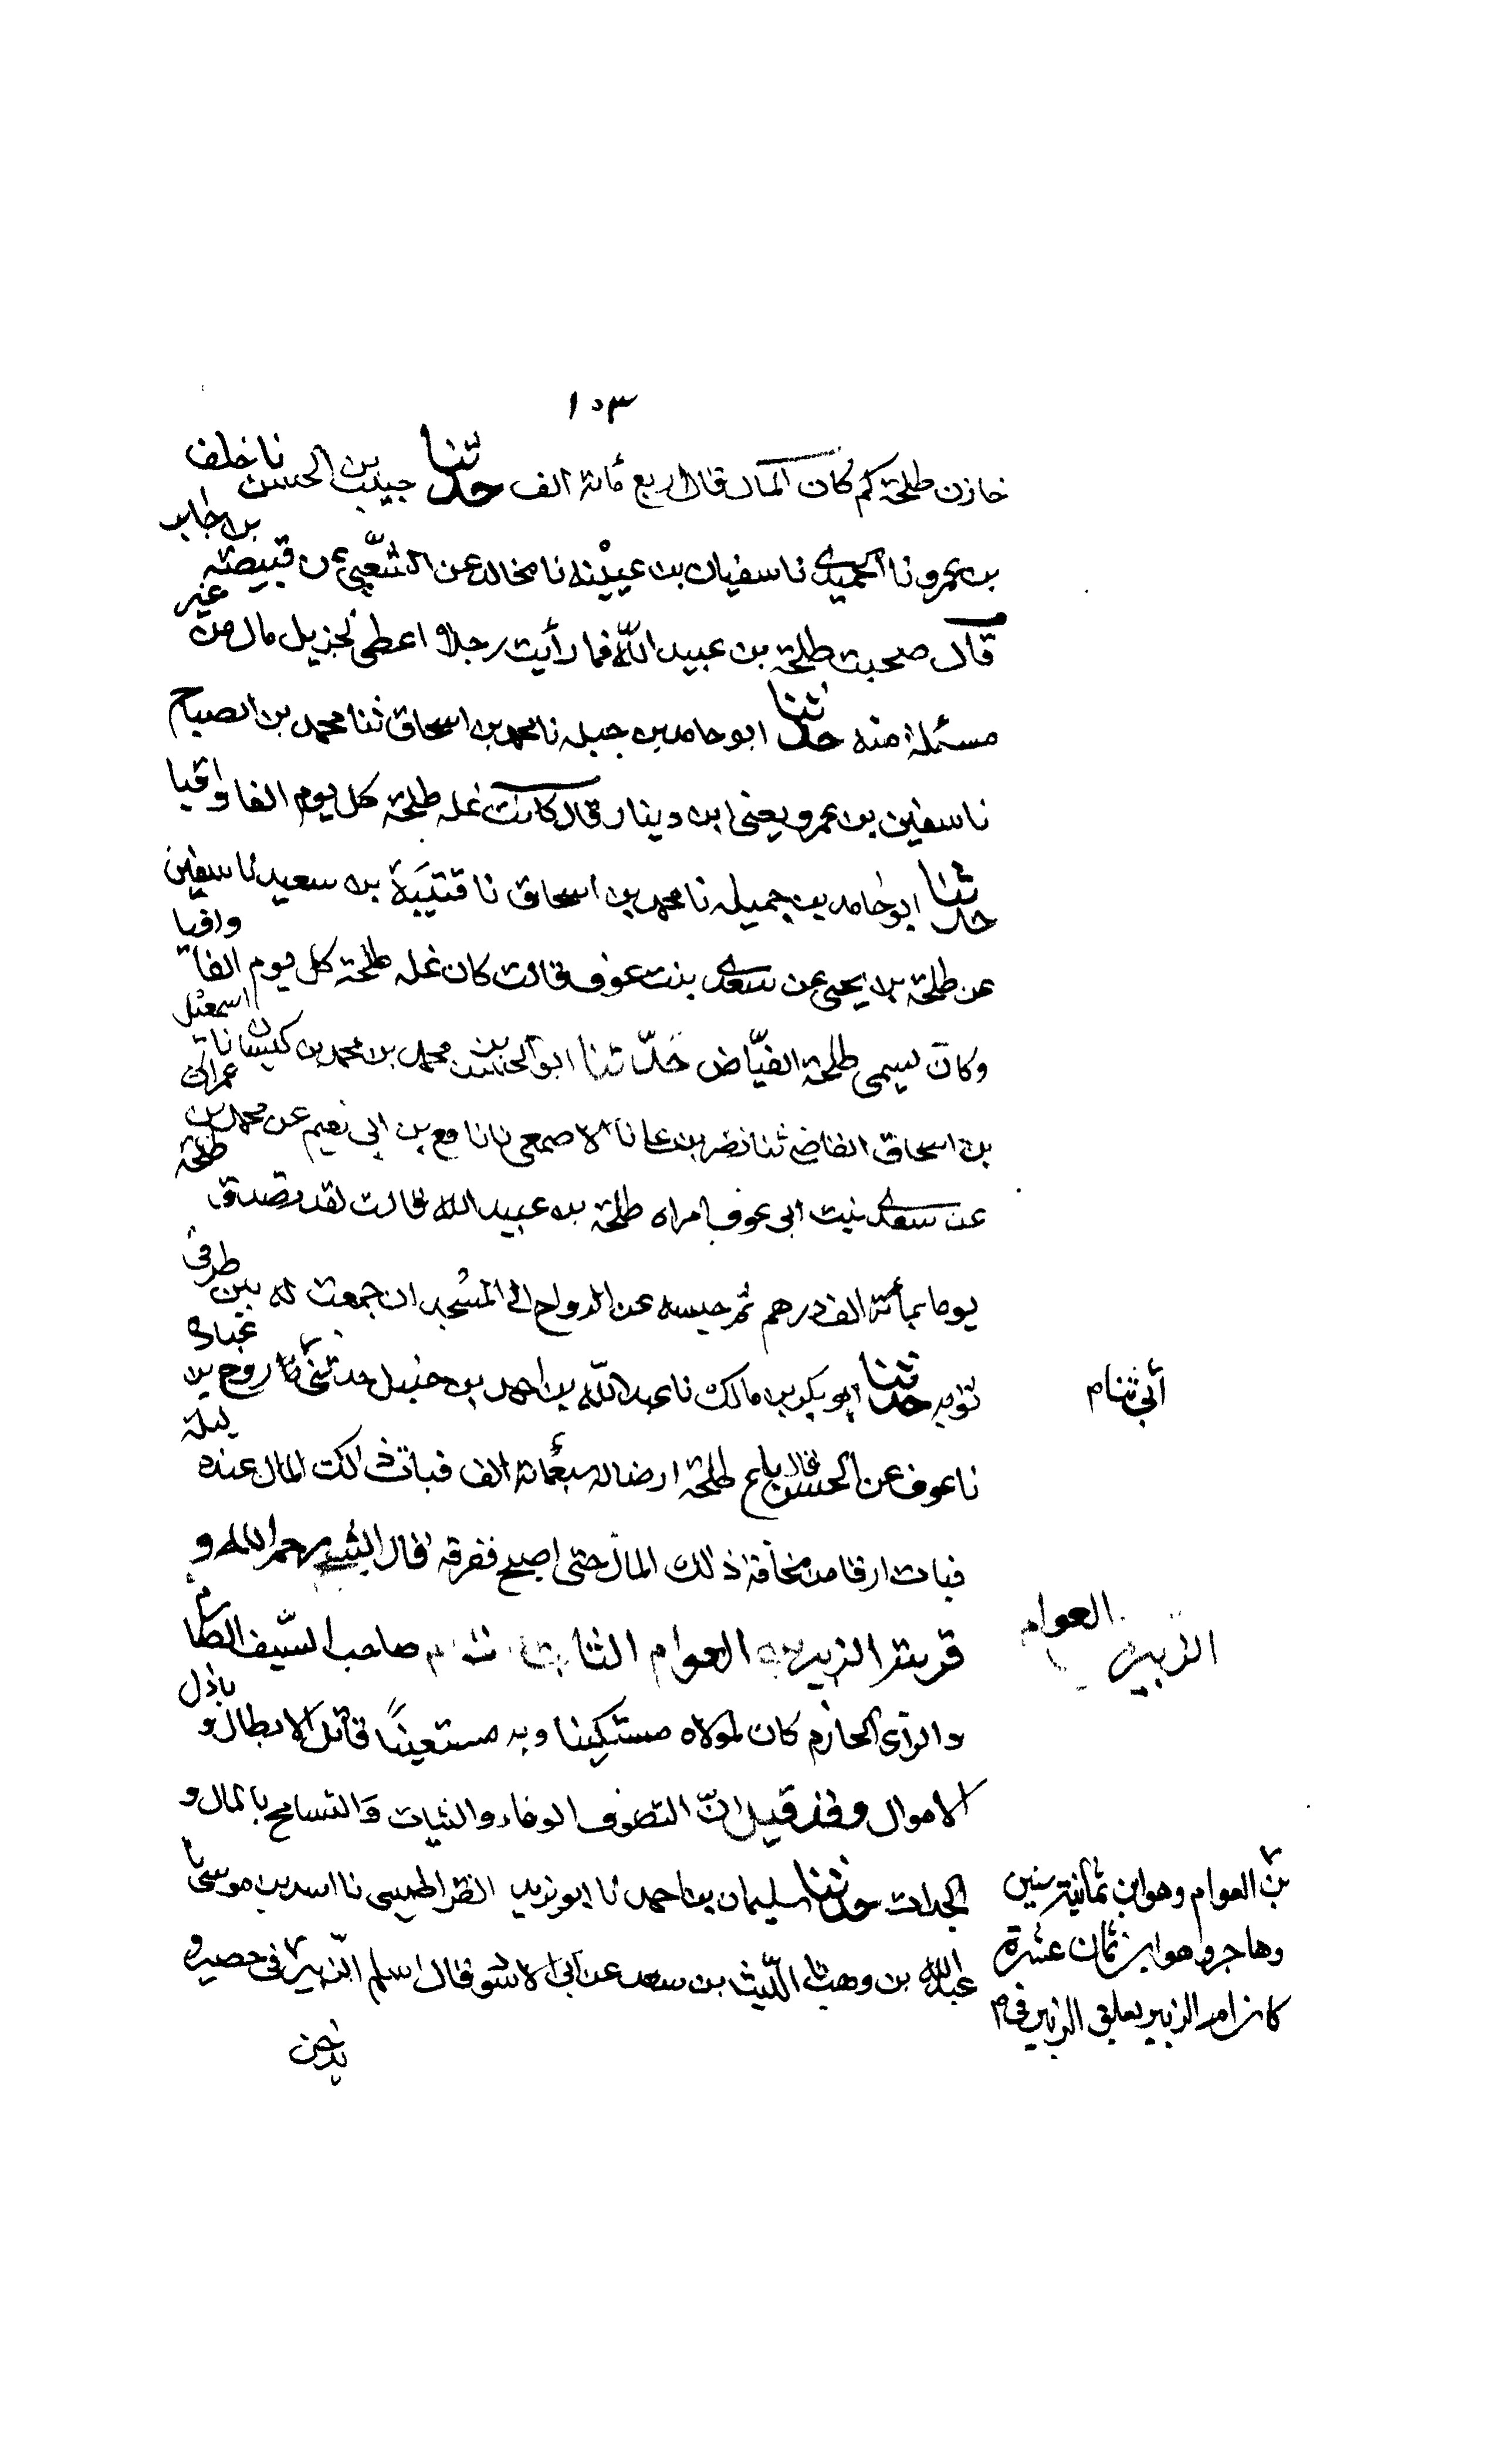 ١٠٣
خازن طلحة كم كان المال قال اربع مائة الف حدثنا حبيب بن الحسن نا خلف
بن عمرو نا الحميدى نا سفيان بن عيينه نا مخالد عن الشعبي عن قبيصة بن جابر
قال صحبت طلحة بن عبيد الله فما رأيت رجلا اعطى لجزيل مال من غير
مسئلة منه حدثنا ابو حامد بن جبله نا محمد بن اسحاق ثنا محمد بن الصباح
نا سفين بن عمرو يعنى ابن دينار قال كانت غله طلحة كل يوم الفا وافيا
حدثنا ابو حامد بن جميله نا محمد بن اسحاق نا قتيبة بن سعيد نا سفين
عن طلحة بن يحيى عن سعدى بنت عوف قالت كان غله طلحة كل يوم الفا وافيا
وكان يسمى طلحة الفياض حدثنا ابو الحسن بن محمد بن محمد بن كيسان نا اسمعيل
بن اسحاق القاضي ثنا نضر بن على نا الاصمعى نا نافع بن ابى نعيم عن محمد بن عمران
عن سعدى بنت ابى عوف امراه طلحة بن عبيد الله قالت لقد تصدق طلحة
يوما بمأئة الف درهم ثم حبسه عن الرواح الى المسجد ان جمعت له بين طرفى
ثوبه حدثنا ابو بكر بن مالك نا عبد الله بن احمد بن حنبل حدثنى نا روح بن عباده
أبي ثنا م
نا عوف عن الحسن قال باع طلحة ارضا له سبعمائة الف فبات ذالك المال عنده ليلة
فبات ارقا من مخافة ذلك المال حتى اصبح ففرقه قال الشيخ رحمه الله و
قرينه الزبير بن العوام الثابت صاحب السيف الصارم
الزبير بن العوام
والرأى الحازم كان لمولاه مستكينا وبه مستعينًا قاتل الابطال و باذل
الاموال وقد قيل انّ التصوف الوفاء والثبات والتسامح بالمال و
الجدات حدثنا سليمان بن احمد نا ابو يزيد القراطيسى نا اسد بن موسى نا
عبد الله بن وهب نا الليث بن سعد عن ابى الاسود قال اسلم الزبير فى حصير و
بن العوام وهو ابن ثمانية سنين
وهاجر وهو ابن ثمان عشرة
كان عم الزبير يعلق الزبير فى م
يدخن